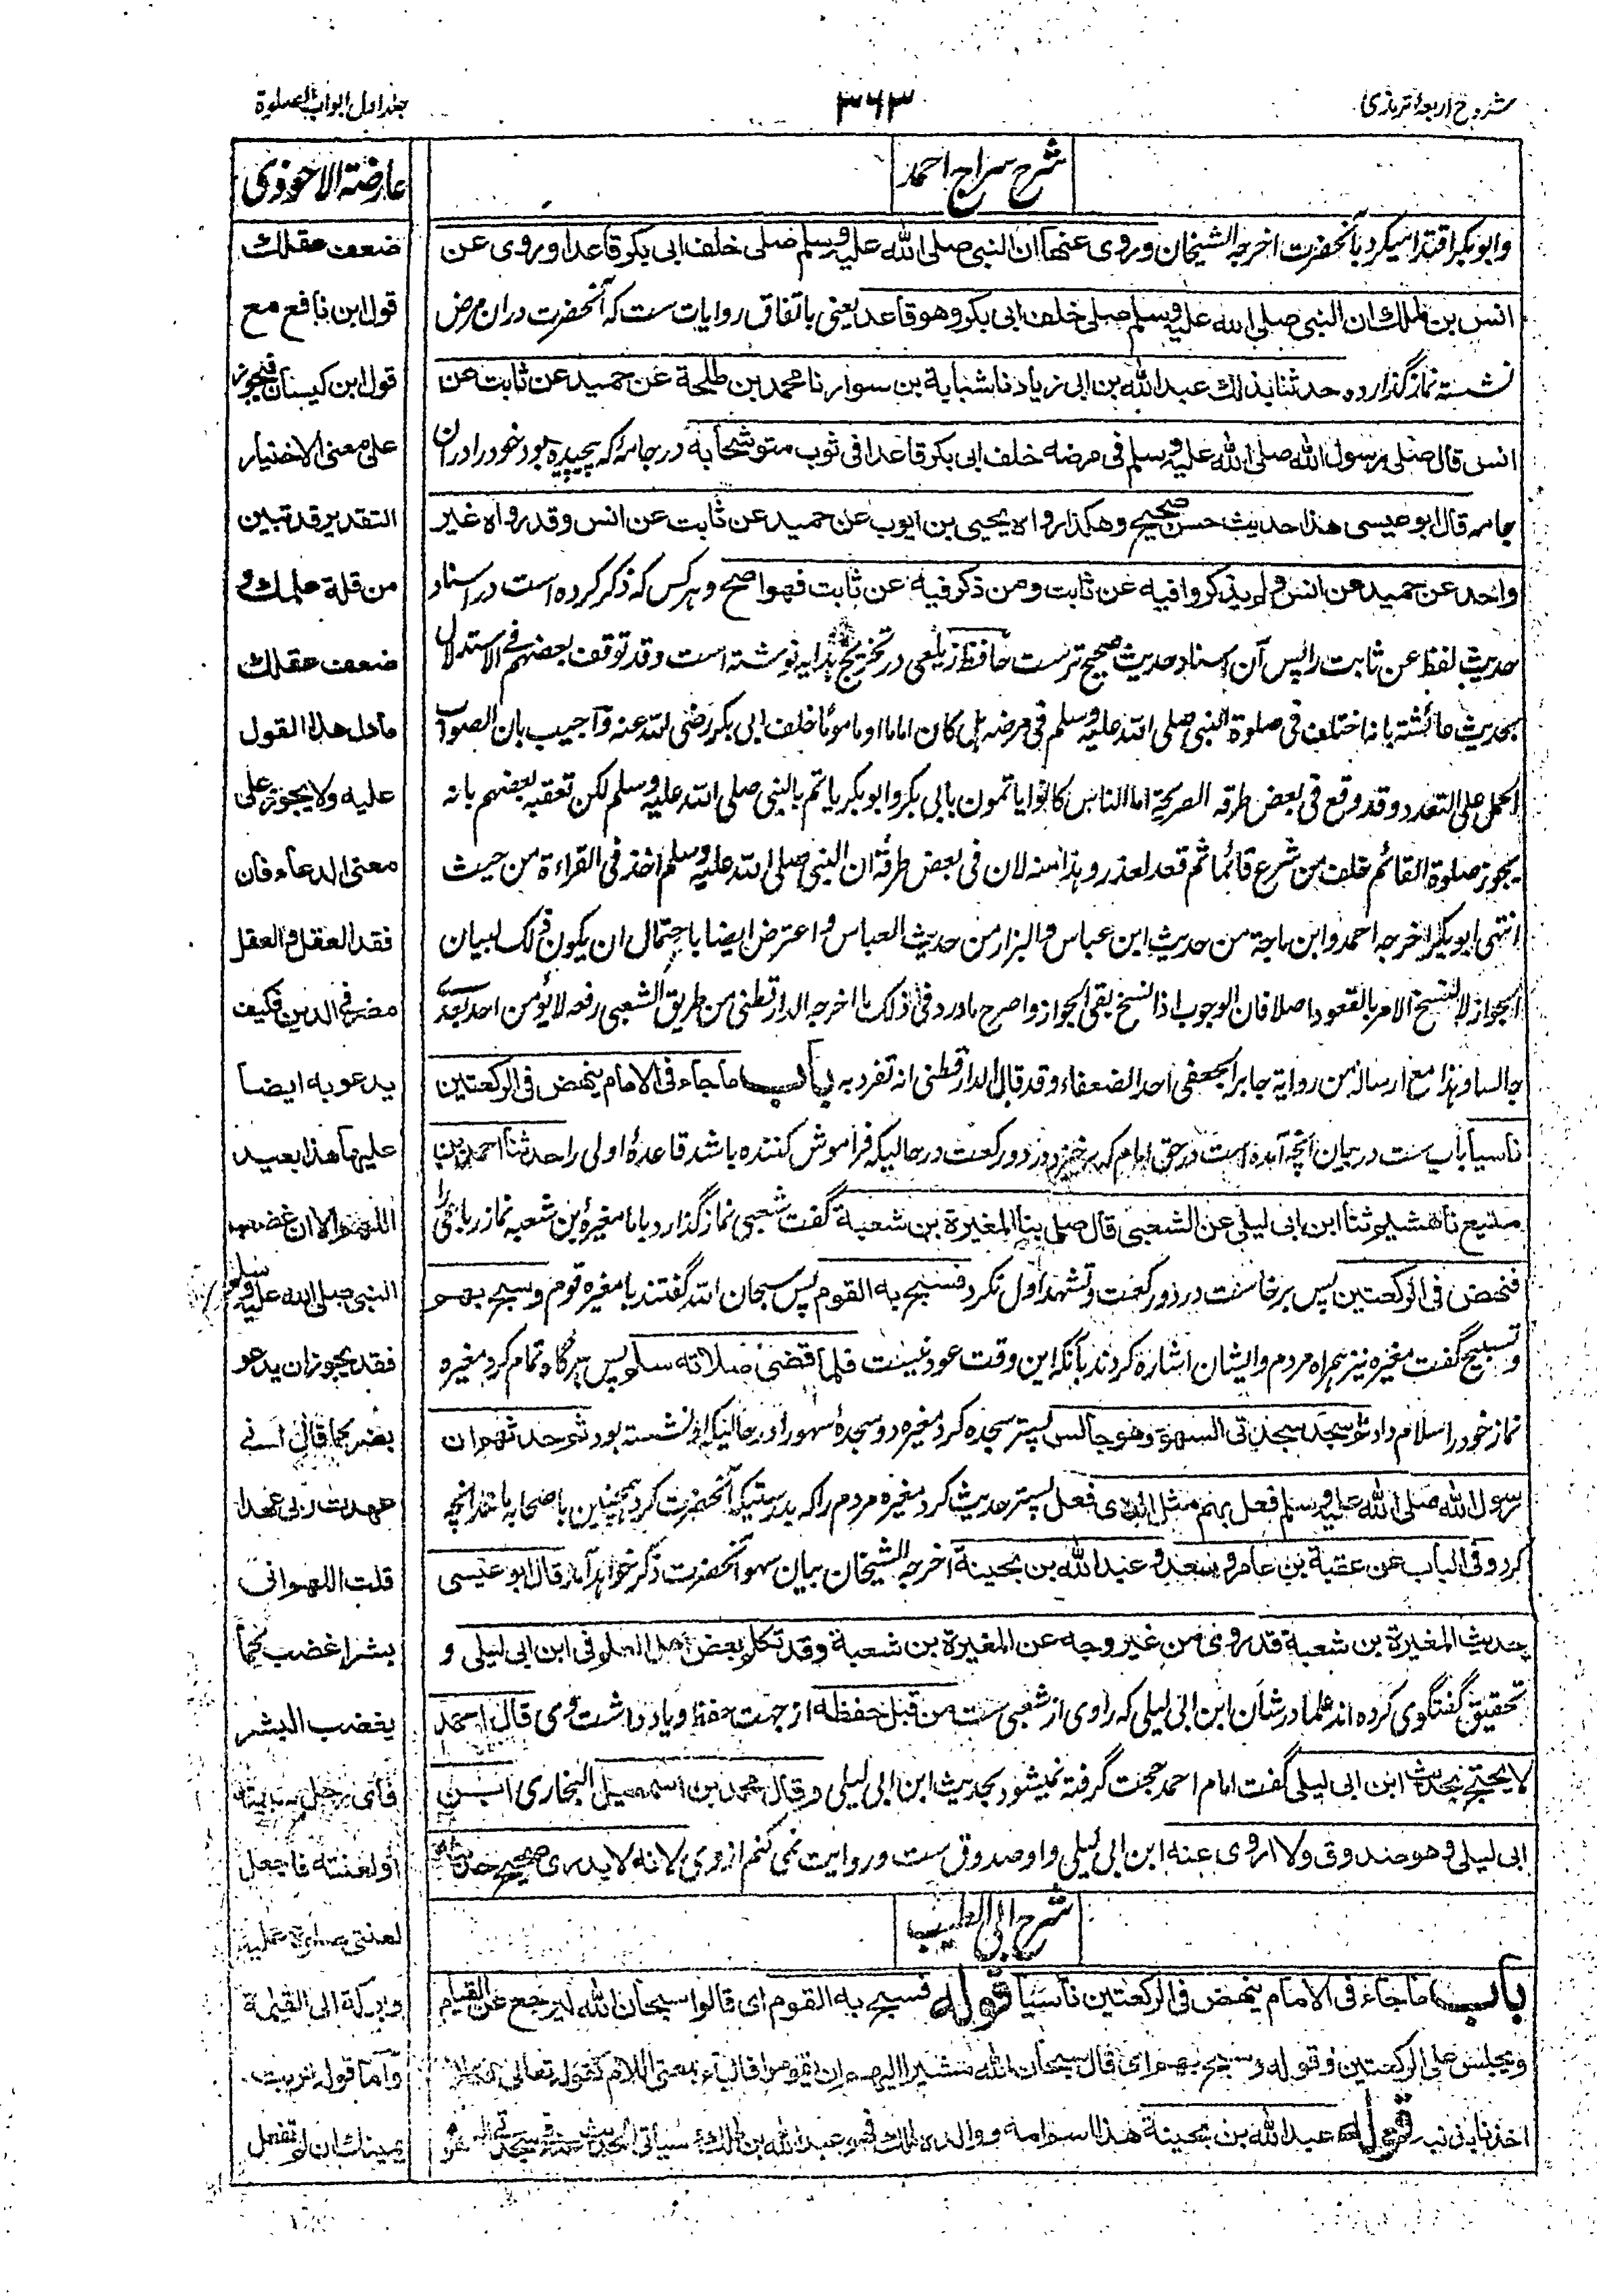 شروح اربعهٔ ترمذی
۳۶۳
جلد اول ابواب الصلوٰة
شرح سراج احمد
وابوبکر اقتدا میکرد بآنحضرت اخرجه الشیخان وروی عنها ان النبی صلی الله علیه وسلم صلی خلف ابی بکر قاعدا وروی عن
انس بن مالک ان النبی صلی الله علیه وسلم صلی خلف ابی بکر وهو قاعد یعنی باتفاق روایات ست که آنحضرت دران مرض
نشسته نماز گذارده حدثنا بذلك عبدالله بن ابی زیاد نا شبابة بن سوار نا محمد بن طلحة عن حمید عن ثابت عن
انس قال صلی رسول الله صلی الله علیه وسلم فی مرضه خلف ابی بکر قاعدا فی ثوب متوشحا به در جامهٔ که پیچیده بود خود را دران
جامه قال ابو عیسی هذا حدیث حسن صحیح وهکذا رواه یحیی بن ایوب عن حمید عن ثابت عن انس وقد رواه غیر
واحد عن حمید عن انس ولم یذکروا فیه عن ثابت ومن ذکر فیه عن ثابت فهو اصح وهر کس که ذکر کرده است در اسناد
حدیث لفظ عن ثابت را پس آن اسناد حدیث صحیح ترست حافظ زیلعی در تخریج هدایه نوشته است وقد توقف بعضهم فی الاستدلال
بحدیث عائشة بانه اختلف فی صلوة النبی صلی الله علیه وسلم فی مرضه هل کان اماما او ماموما خلف ابی بکر رضی الله عنه واجیب بان الصواب
الحمل علی التعدد وقد وقع فی بعض طرقه الصریحة اما الناس کانوا یاتمون بابی بکر وابوبکر یاتم بالنبی صلی الله علیه وسلم لکن تعقبه بعضهم بانه
یجوز صلوة القائم خلف من شرع قائما ثم قعد لعذر وهذا منه لان فی بعض طرقه ان النبی صلی الله علیه وسلم اخذ فی القراءة من حیث
انتهی ابوبکر اخرجه احمد وابن ماجة من حدیث ابن عباس والبزار من حدیث العباس واعترض ایضا باحتمال ان یکون ذلک لبیان
الجواز لا لنسخ الامر بالقعود اصلا فان الوجوب اذا نسخ بقی الجواز واصرح ما ورد فی ذلک ما اخرجه الدارقطنی من طریق الشعبی رفعه لا یؤمن احد بعدی
جالسا وهذا مع ارساله من روایة جابر الجعفی احد الضعفاء وقد قال الدارقطنی انه تفرد به باب ما جاء فی الامام ینهض فی الرکعتین
ناسیا باب ست در بیان آنچه آمده است در حق امام که برخیزد در دو رکعت در حالیکه فراموش کننده باشد قاعدهٔ اولی را حدثنا احمد بن
منیع نا هشیم ثنا ابن ابی لیلی عن الشعبی قال صلی بنا المغیرة بن شعبة گفت شعبی نماز گذارد با ما مغیرة بن شعبه نماز رباعی را
فنهض فی الرکعتین پس برخاست در دو رکعت وتشهد اول نکرد فسبح به القوم پس سبحان الله گفتند با مغیره قوم وسبح بهم
وتسبیح گفت مغیره نیز همراه مردم وایشان اشاره کردند بآنکه این وقت عود نیست فلما قضی صلاته سلم پس هرگاه تمام کرد مغیره
نماز خود را سلام داد ثم سجد سجدتی السهو وهو جالس پستر سجده کرد مغیره دو سجدهٔ سهو را در حالیکه او نشسته بود ثم حدثهم ان
رسول الله صلی الله علیه وسلم فعل بهم مثل الذی فعل پستر حدیث کرد مغیره مردم را که بدرستیکه آنحضرت کرد همچنین باصحابه مانند آنچه
کرد وفی الباب عن عقبة بن عامر وسعد وعبد الله بن بحینة اخرجه الشیخان بیان سهو آنحضرت ذکر خواهد آمد قال ابو عیسی
حدیث المغیرة بن شعبة قد روی من غیر وجه عن المغیرة بن شعبة وقد تکلم بعض اهل العلم فی ابن ابی لیلی و
تحقیق گفتگوی کرده اند علما در شان ابن ابی لیلی که راوی از شعبی ست من قبل حفظه از جهت حفظ ویاد داشت وی قال احمد
لا یحتج بحدیث ابن ابی لیلی گفت امام احمد حجت گرفته نمیشود بحدیث ابن ابی لیلی وقال محمد بن اسمعیل البخاری ابن
ابی لیلی وهو صدوق ولا اروی عنه ابن ابی لیلی واو صدوق ست وروایت نمی کنم از وی لانه لا یدری صحیح حدیثه
شرح ابی الطیب
باب ما جاء فی الامام ینهض فی الرکعتین ناسیا قوله فسبح به القوم ای قالوا سبحان الله لیرجع عن القیام
ویجلس علی الرکعتین وقوله وسبح بهم ای قال سبحان الله مشیرا الیهم ان یقوموا فالباء بمعنی اللام کقوله تعالی
اخذنا بذنبه قوله عبدالله بن بحینة هذا اسم امه ووالده مالك فهو عبدالله بن مالك
عارضة الاحوذی
ضعف عقلك
قول ابن نافع مع
قول ابن کیسان فیجوز
علی معنی الاختیار
التقدیر قد تبین
من قلة علمك و
ضعف عقلك
ما دل هذا القول
علیه ولا یجوز علی
معنی الدعاء فان
فقد العقل والعقل
مضر فی الدین فکیف
یدعو به ایضا
علیها هذا بعید
اللهم الا ان غضب
النبی صلی الله علیه وسلم
فقد یجوز ان یدعو
بضر کما قال انی
عهدت ربی عهدا
قلت اللهم انی
بشر اغضب کما
یغضب البشر
فأی رجل سببته
أو لعنته فاجعل
لعنتی صلوة علیه
وبرکة الی القیمة
واما قوله تربت
یمینك ان لم تفعل